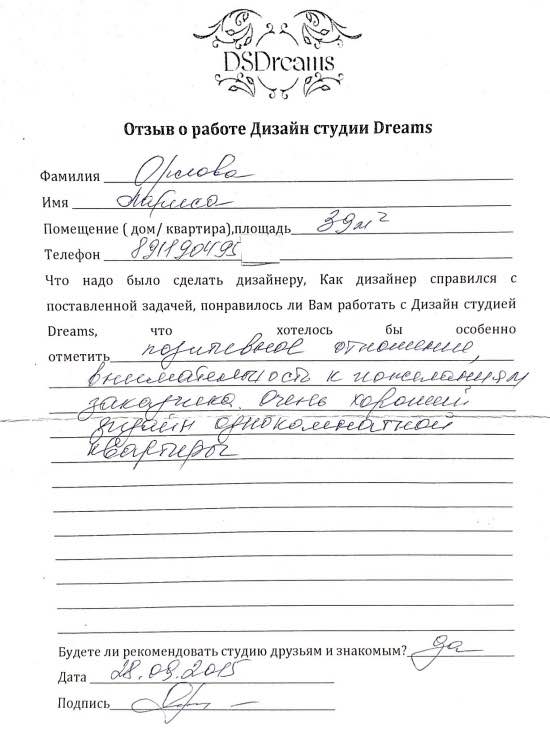 DSDreams
Отзыв о работе Дизайн студии Dreams
Фамилия Орлова
Имя Лариса
Помещение ( дом/ квартира),площадь 39м²
Телефон 891190495
Что надо было сделать дизайнеру, Как дизайнер справился с
поставленной задачей, понравилось ли Вам работать с Дизайн студией
Dreams, что хотелось бы особенно
отметить позитивное отношение,
внимательность к пожеланиям
заказчика. Очень хороший
дизайн однокомнатной
квартиры
Будете ли рекомендовать студию друзьям и знакомым? да
Дата 28.09.2015
Подпись